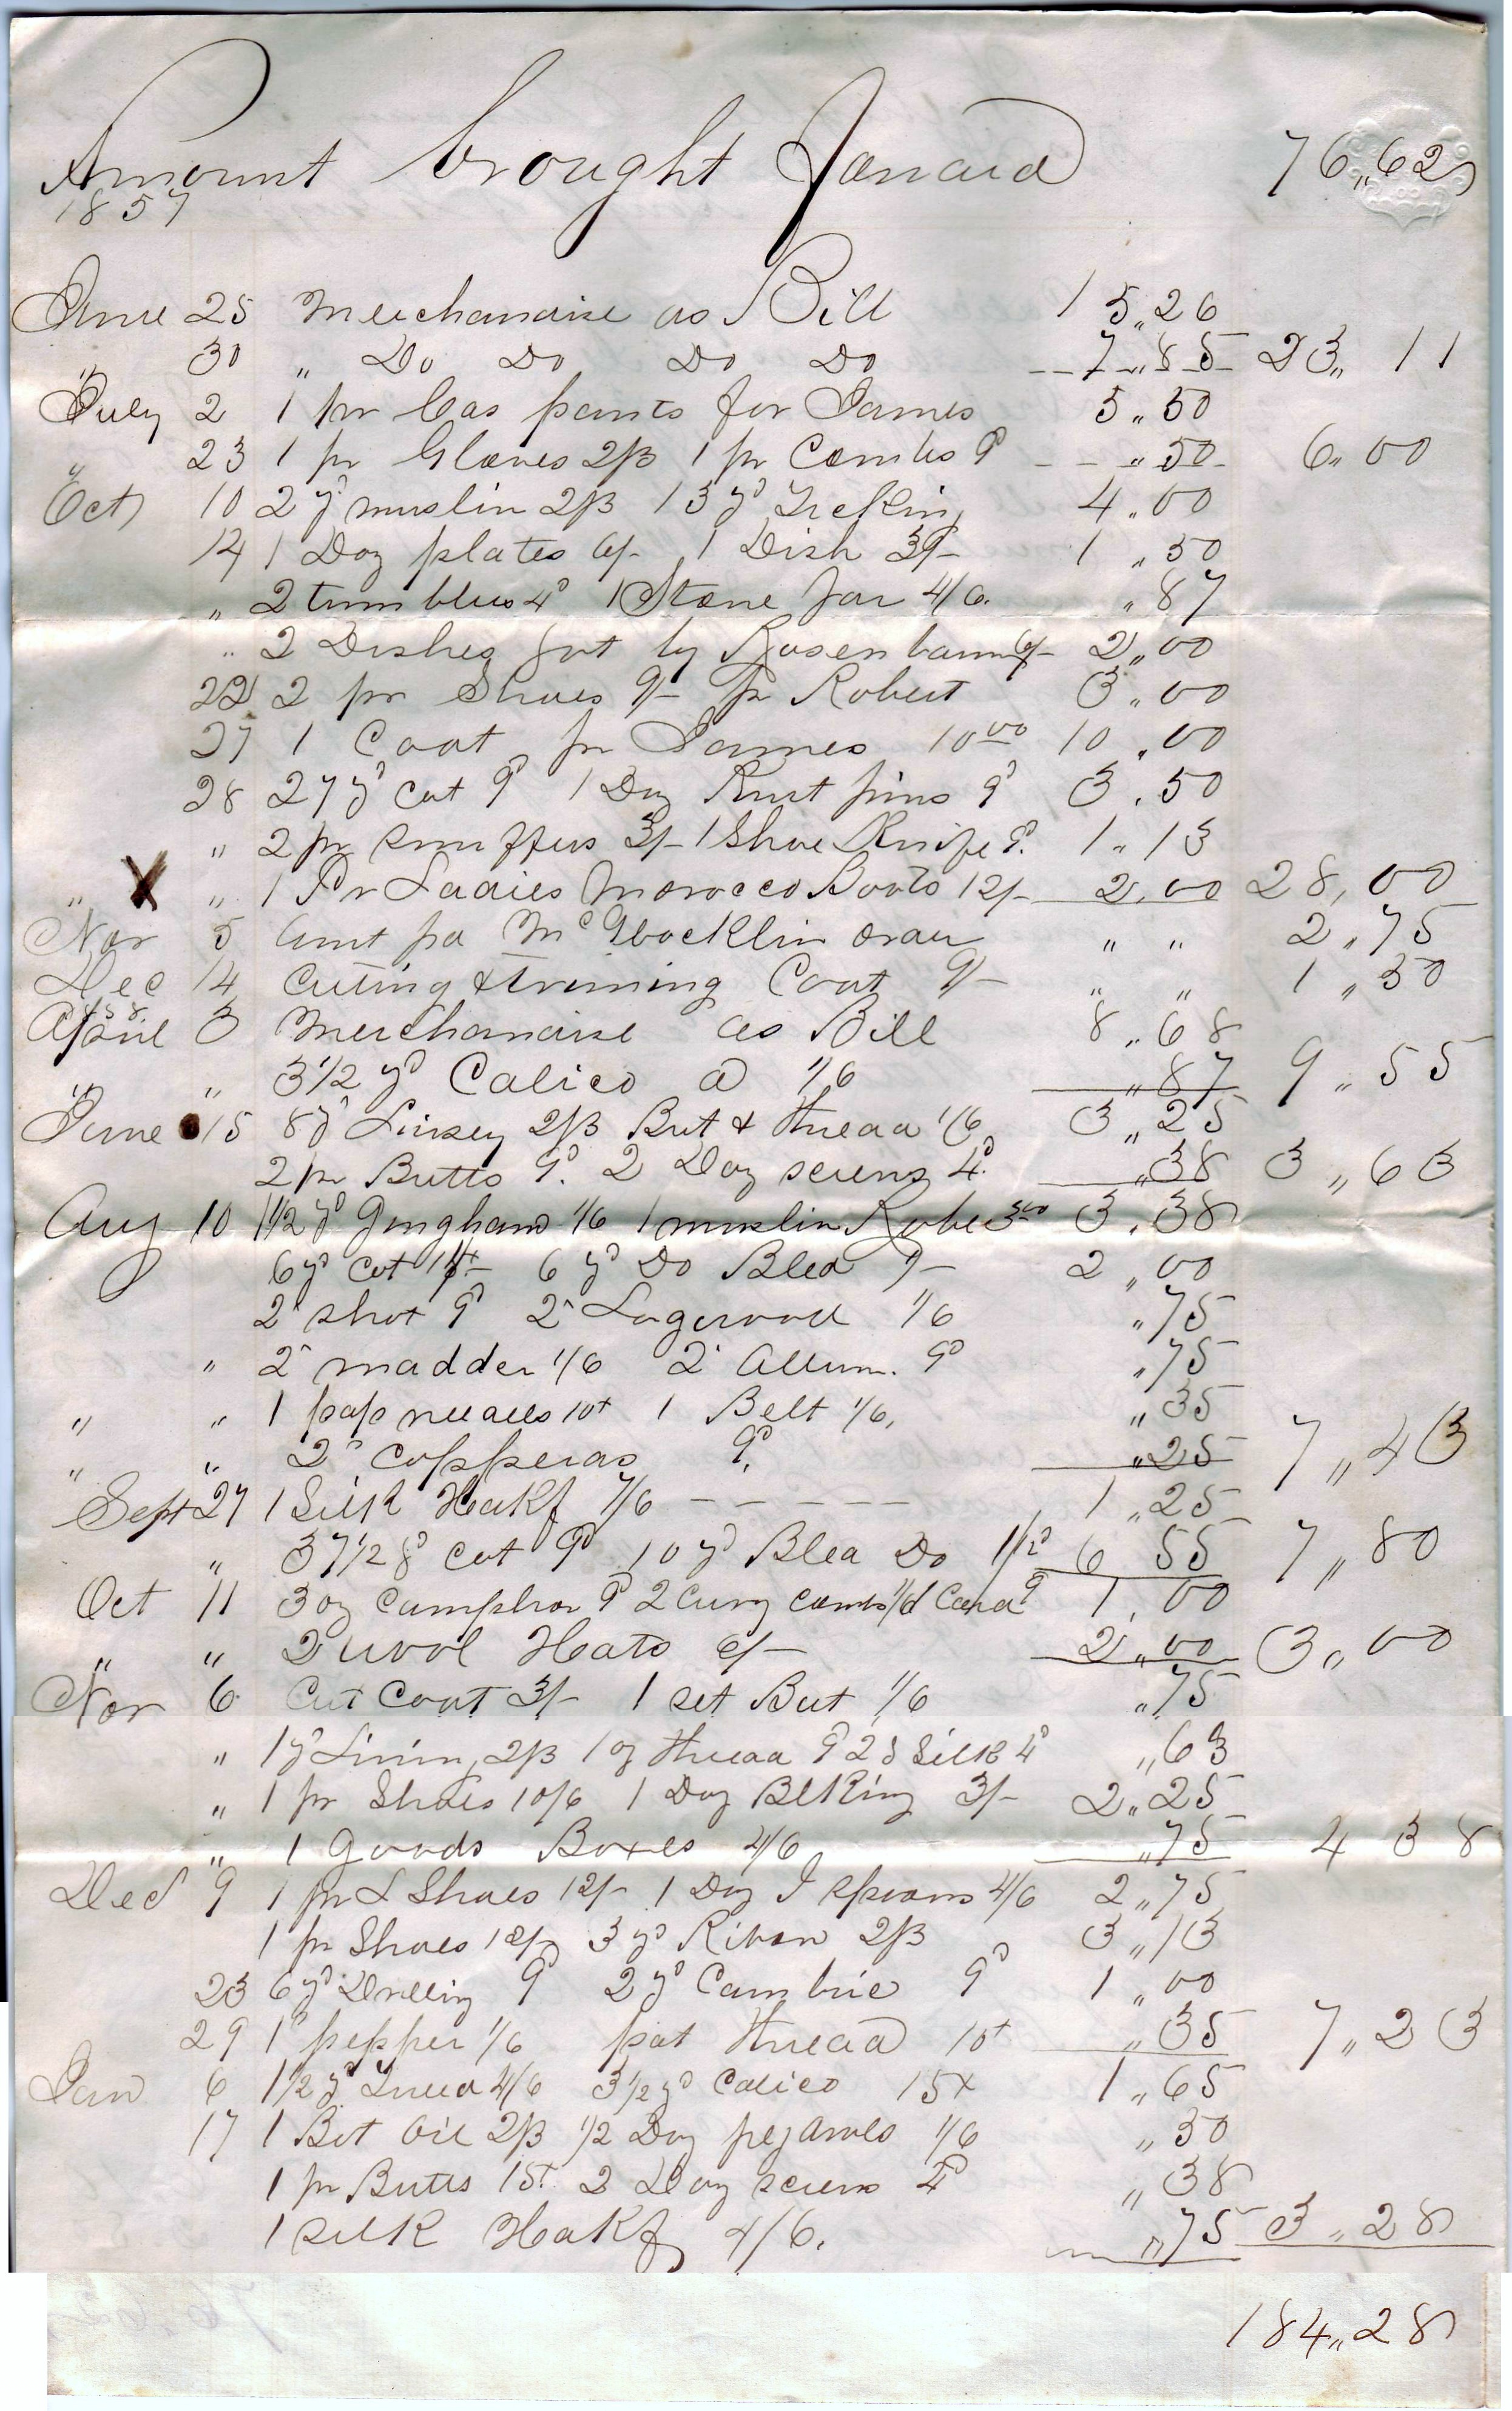 Amount brought Forward 76,,62
1857
June 25 Merchandise as Bill 15,,26
" 30 " Do Do Do Do 7,,85 23,,11
July 2 1 pr Cas pants for James 5,,50
" 23 1 pr Gloves 2/3 1 pr Combs 9d ,,50 6,,00
Oct 10 2 yd muslin 2/3 13 yd Tickin 4,,00
14 1 Doz plates 6/- 1 Dish 3/- 1,,50
" 2 tumblers 4d 1 Stone Jar 4/6. ,,87
" 2 Dishes got by Rosenbaum 2,,00
22 2 pr Shoes 9/- pr Robert 3,,00
27 1 Coat pr James 10 00 10,,00
28 27 yd Cot 9d 1 Doz Knit pins 9d 3,50
" 2 pr snuffers 3/- 1 Shoe Knife 9d. 1,,13
" X " 1 Pr Ladies Morocco Boots 12/- 2,00 28,00
Nov 5 Amt pd McGlocklin " " 2,75
Dec 14 Cuting & triming Coat 9/- " " 1,,50
1858
April 3 Merchandise as Bill 8,,68
" " 3 1/2 yd Calico a 1/6 ,,87 9,,55
June 15 8 yd Linsey 2/3 But & thread 1/6 3,,25
2 pr Butts 9d. 2 Doz screws 4d. ,,38 3,,63
Aug 10 1 1/2 yd Gingham 1/6 1 muslin Robe 3 00 3,38
6 yd Cot 6 yd Do Blea 9- 2,,00
2" shot 9d 2" Logwood 1/6 ,,75
" 2" madder 1/6 2" Allum. 9d ,,75
" " 1 pap needles 10+ 1 Belt 1/6. ,,35
" " 2" Copperas 9d. ,,25 7,,43
Sept 27 1 Silk Hdkf 7/6 - - - - - 1,,25
" 37 1/2 yd Cot 9d 10 yd Blea Do 6 55 7,,80
Oct 11 3 oz Camphor 9d 2 Curry Combs 1/6 Card 9d 1,00
" " 2 wool Hats 2,,00 3,,00
Nov 6 Cut Coat 3/- 1 set But 1/6 ,,75
" 1 yd Linin 2/3 1 oz thread 9d 2 S Silk 4d ,,63
" 1 pr Shoes 10/6 1 Doz Blking 3/- 2,,25
" 1 Goods Boxes 4/6 ,,75 4 38
Dec 9 1 pr L Shoes 12/- 1 Doz I spoons 4/6 2,,75
1 pr Shoes 3 yd Ribon 2/3 3,,13
23 6 yd Drilling 9d 2 yd Cambric 9d 1,,00
29 1" pepper 1/6 pat thread 10+ ,,35 7,,23
Jan 6 1 1/2 yd 4/6 3 1/2 yd Calico 15+ 1,,65
17 1 Bot Oil 2/3 1/2 Doz peg awls 1/6 ,,50
1 pr Butts 15+. 2 Doz screws 4d ,,38
1 silk Hdkf 4/6. ,,75 3,,28
184,,28